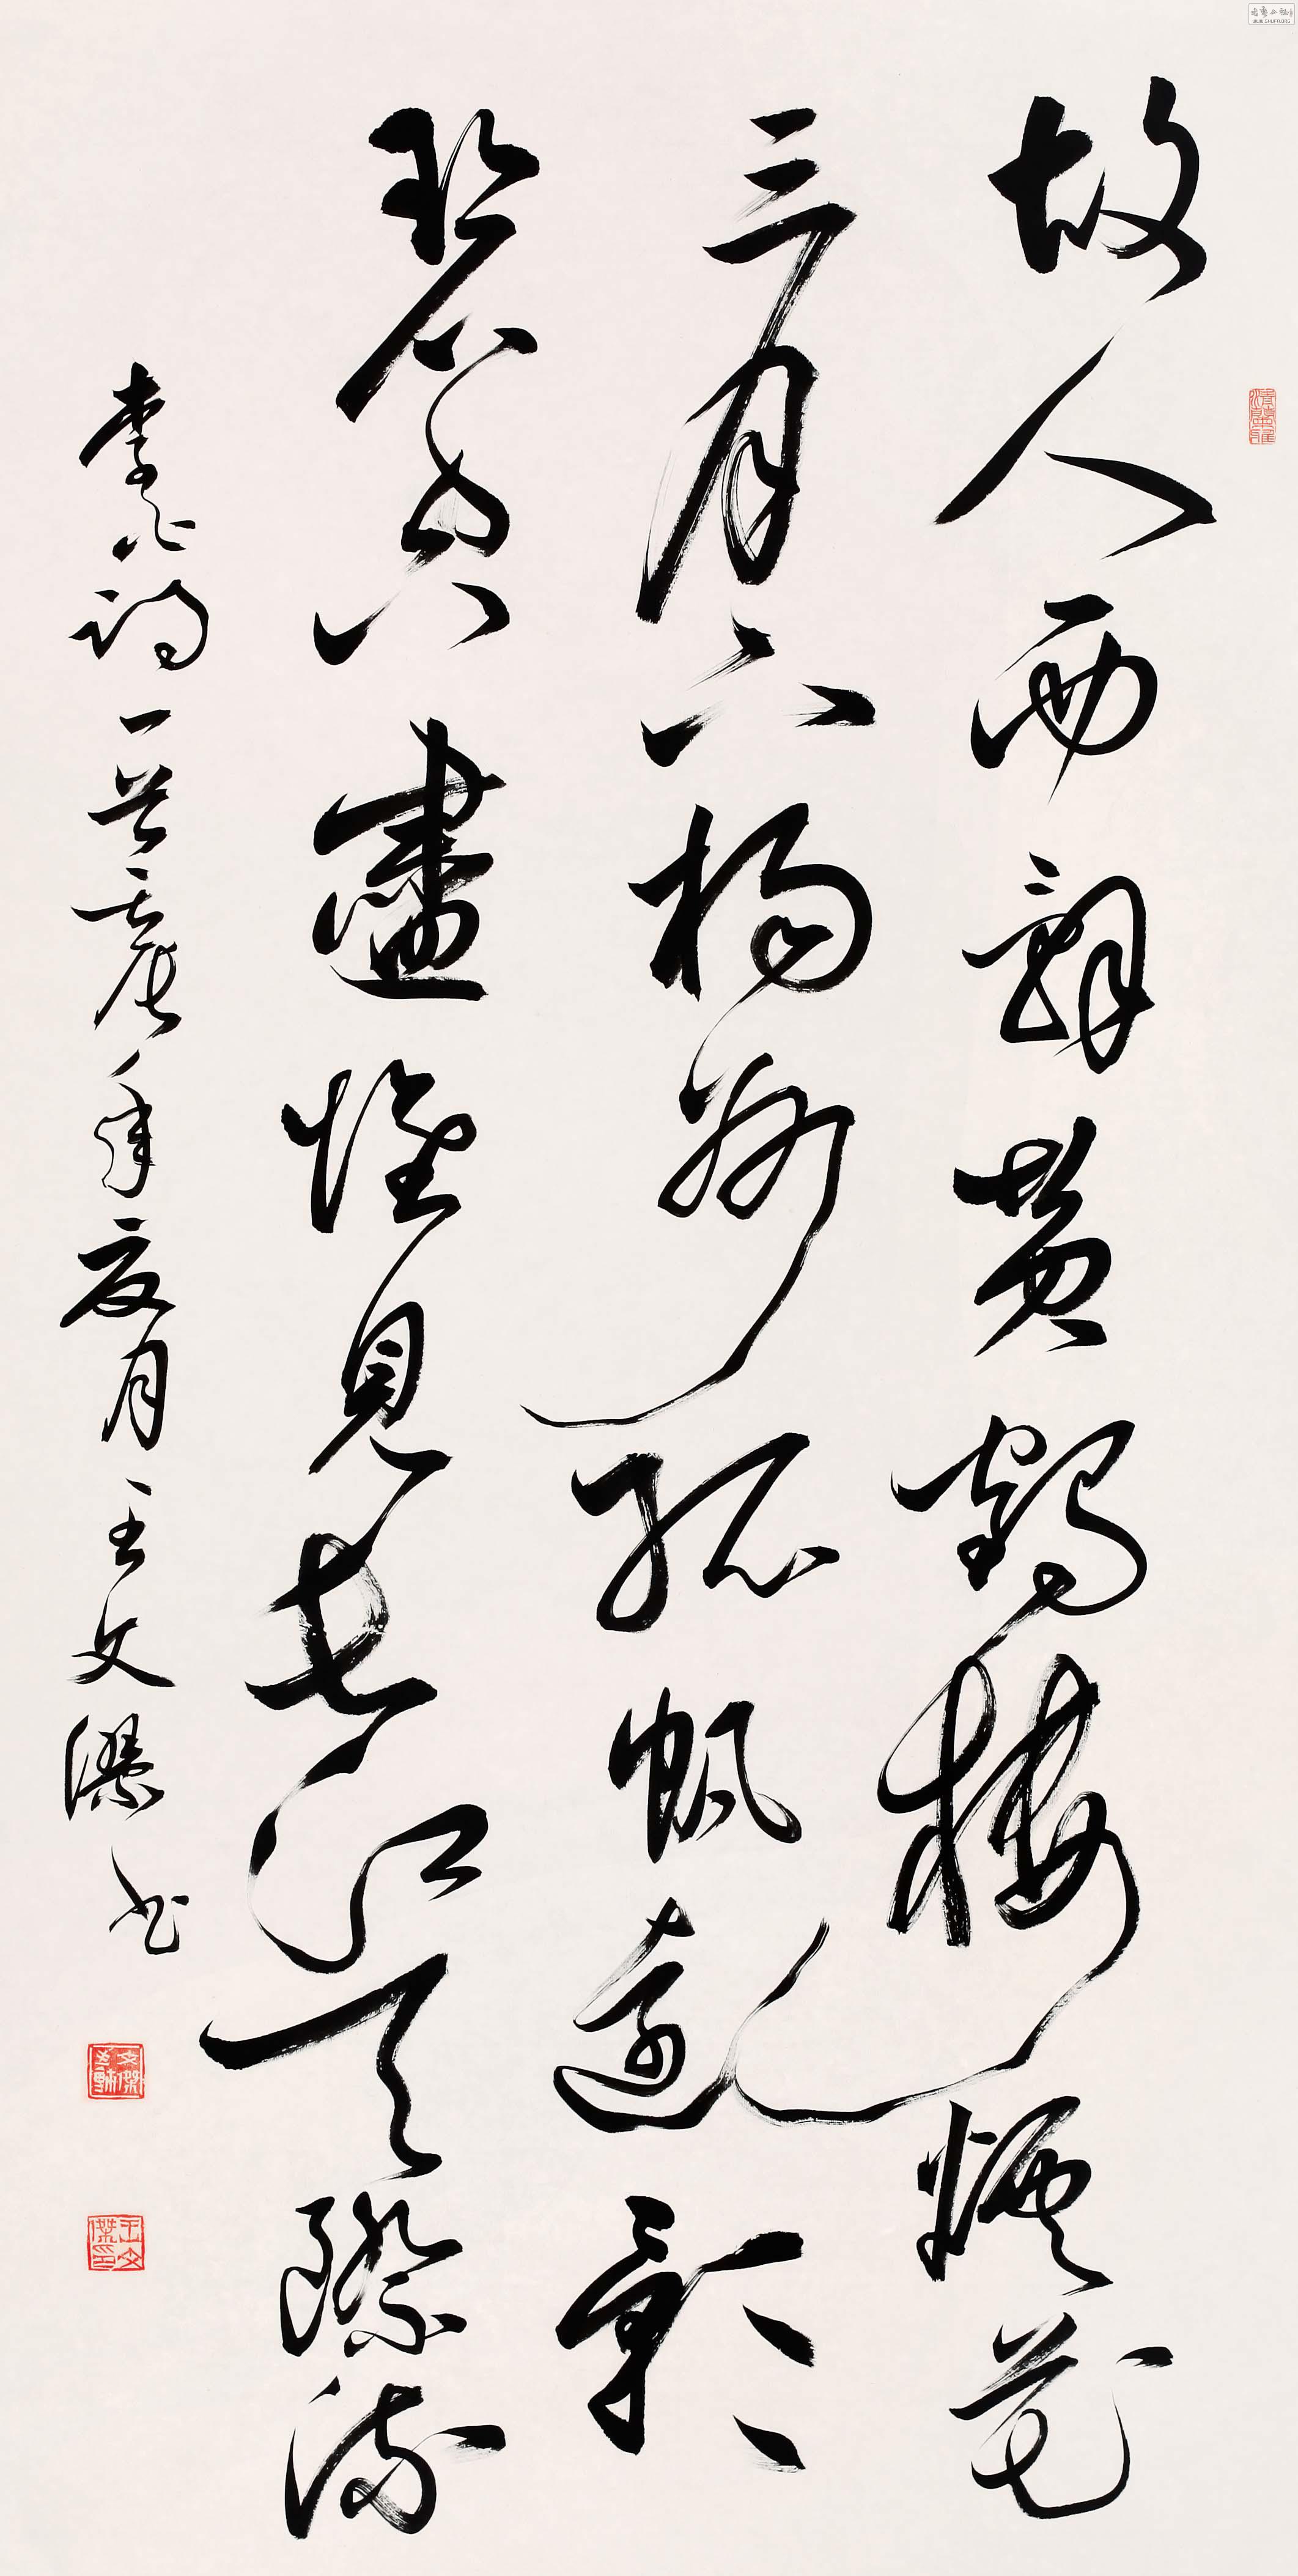 故人西辭黃鶴樓煙花
三月下楊州孤帆遠影
碧空盡惟見長江天際流
李白詩一首壬辰年夏月王文傑书
王文傑印